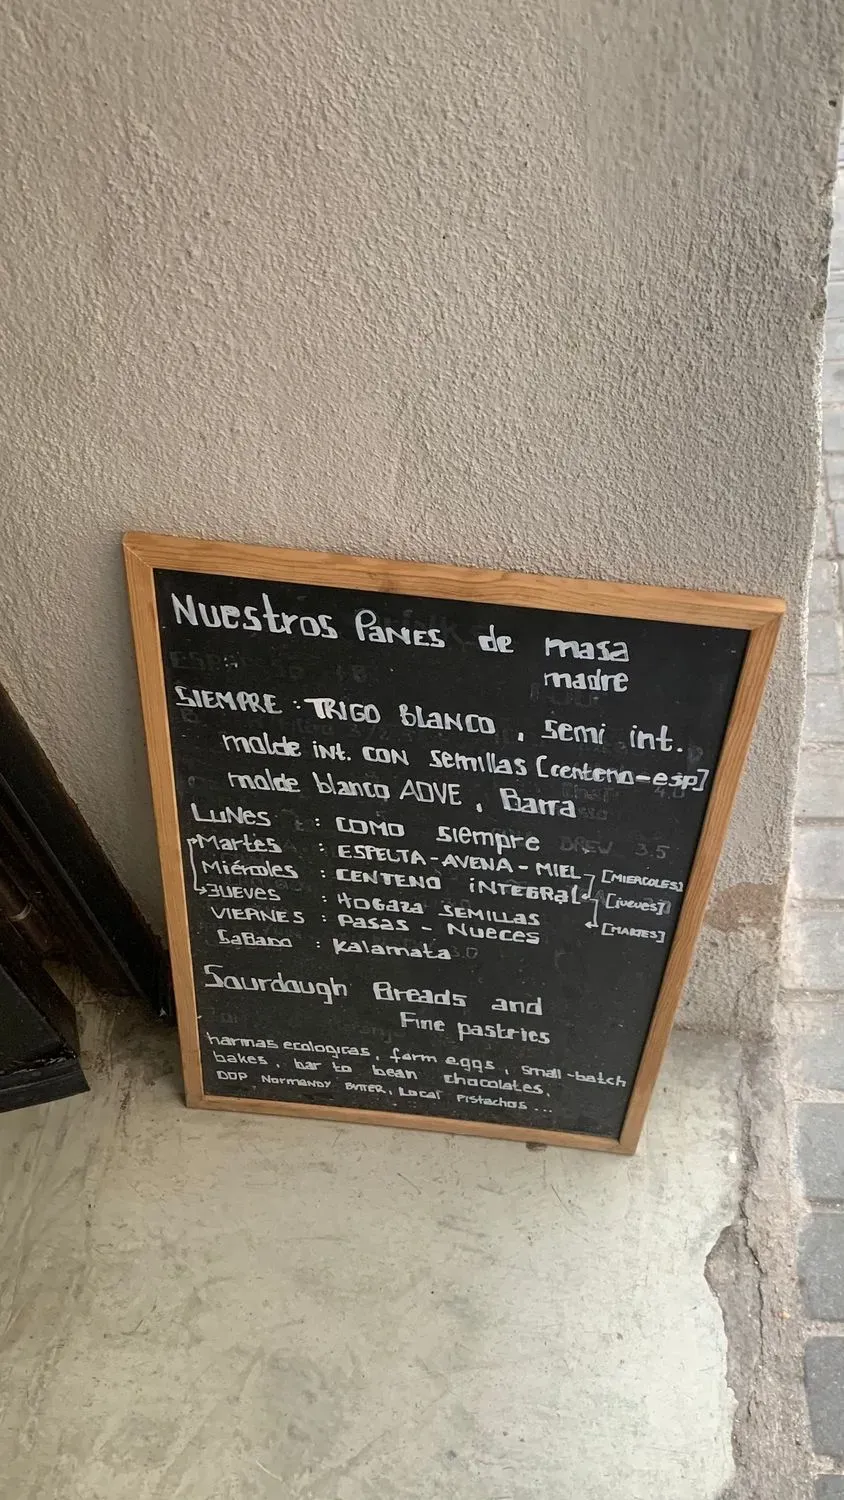 Nuestros PANES de masa
madre
SIEMPRE : TRIGO blANCO , semi int.
molde int. CON semillas [centeno-esp]
molde blanco AOVE , Barra
LuNes : COMO siempre
Martes : ESPELTA-AVENA-MIEL [MIERCOLES]
Miércoles : CENTENO iNTEGRAL [jueves]
JUEVES : HOGAZA SEMILLAS
VIERNES : PASAS - NUECES [MARTES]
SaBADO : Kalamata
Sourdough Breads and
Fine pastries
harinas ecologicas, farm eggs, small-batch
bakes, bar to bean chocolates,
DOP NORMANDY BUTTER, Local Pistachos ...